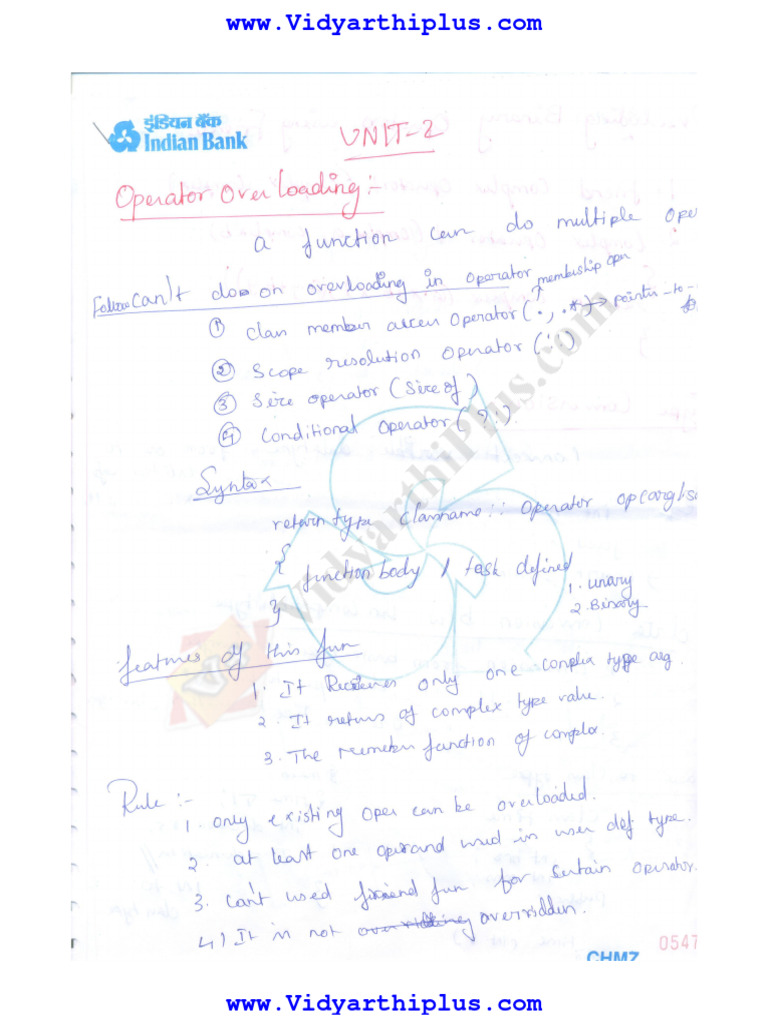 www.Vidyarthiplus.com
इंडियन बैंक
Indian Bank
UNIT-2
Operator Over Loading:-
a function can do multiple Ope
Follow Can't do on overloading in operator
membership oper
① class member access Operator ( . , .* ) → pointer-to-
② Scope resolution Operator (::)
③ Size operator (Sizeof)
④ Conditional Operator (?:).
Syntax
return type classname:: operator op(arglis
{
function body / task defined
}
1. Unary
2. Binary
features of this fun
1. It Recieves only one complex type arg.
2. It returns of complex type value.
3. The member function of complex.
Rule :-
1. only existing Oper can be overloaded.
2. at least one operand used in user def type.
3. can't used friend fun for certain operator.
4) It is not overridden.
VidyarthiPlus.com
CHMZ
0547
www.Vidyarthiplus.com